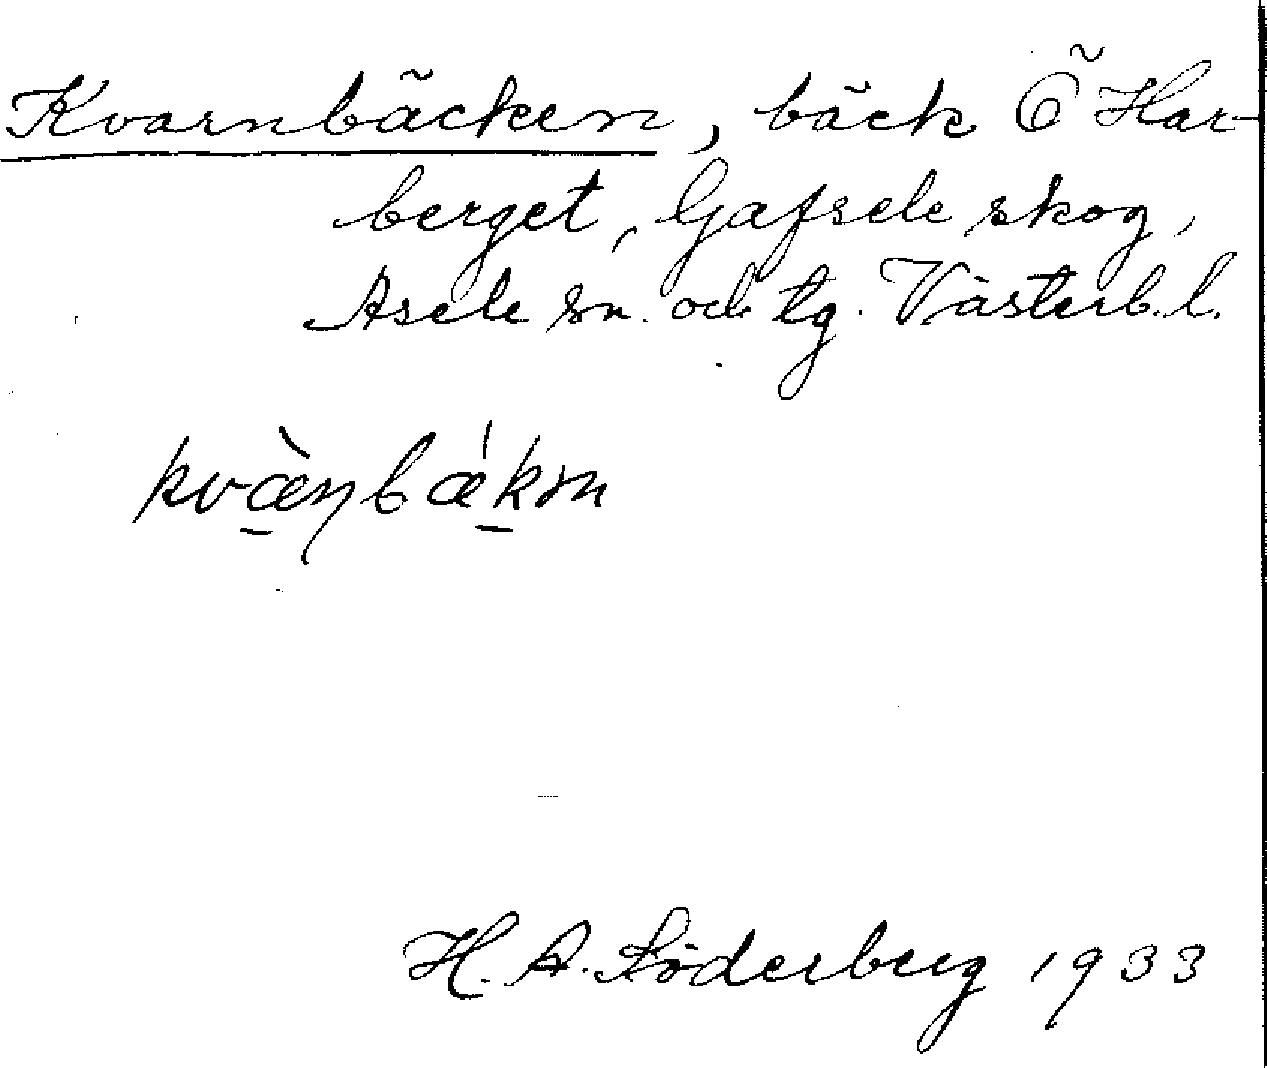 Kvarnbäcken, bäck Ö Har-
berget, Gafsele skog,
Åsele sn. och tg. Västerb. l.
kvæ̀ŋbækən
H. A. Söderberg 1933